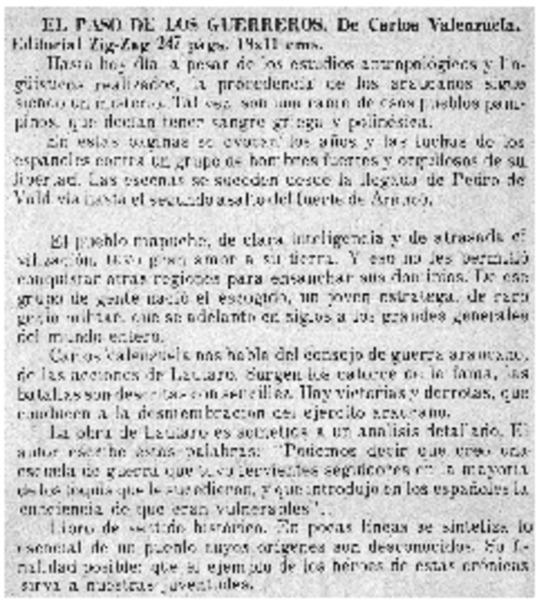 EL PASO DE LOS GUERREROS. De Carlos Valenzuela.
Editorial Zig-Zag 247 págs. 19x11 cms.
Hasta hoy día, a pesar de los estudios antropológicos y lin-
güísticos realizados, la procedencia de los araucanos sigue
siendo un misterio. Tal vez son una rama de esos pueblos pam-
pinos, que decían tener sangre griega y polinésica.
En estas páginas se evocan los años y las luchas de los
españoles contra un grupo de hombres fuertes y orgullosos de su
libertad. Las escenas se suceden desde la llegada de Pedro de
Valdivia hasta el segundo asalto del fuerte de Arauco.
El pueblo mapuche, de clara inteligencia y de atrasada ci-
vilización, tuvo gran amor a su tierra. Y eso no les permitió
conquistar otras regiones para ensanchar sus dominios. De ese
grupo de gente nació el escogido, un joven estratega, de raro
genio militar, que se adelantó en siglos a los grandes generales
del mundo entero.
Carlos Valenzuela nos habla del consejo de guerra araucano,
de las acciones de Lautaro. Surgen los catorce de la fama, las
batallas son descritas con sencillez. Hay victorias y derrotas, que
conducen a la desmembración del ejército araucano.
La obra de Lautaro es sometida a un análisis detallado. El
autor escribe estas palabras: "Podemos decir que creó una
escuela de guerra que tuvo fervientes seguidores en la mayoría
de los toquis que le sucedieron, y que introdujo en los españoles la
conciencia de que eran vulnerables".
Libro de sentido histórico. En pocas líneas se sintetiza lo
esencial de un pueblo cuyos orígenes son desconocidos. Su fi-
nalidad posible: que el ejemplo de los héroes de estas crónicas
sirva a nuestras juventudes.